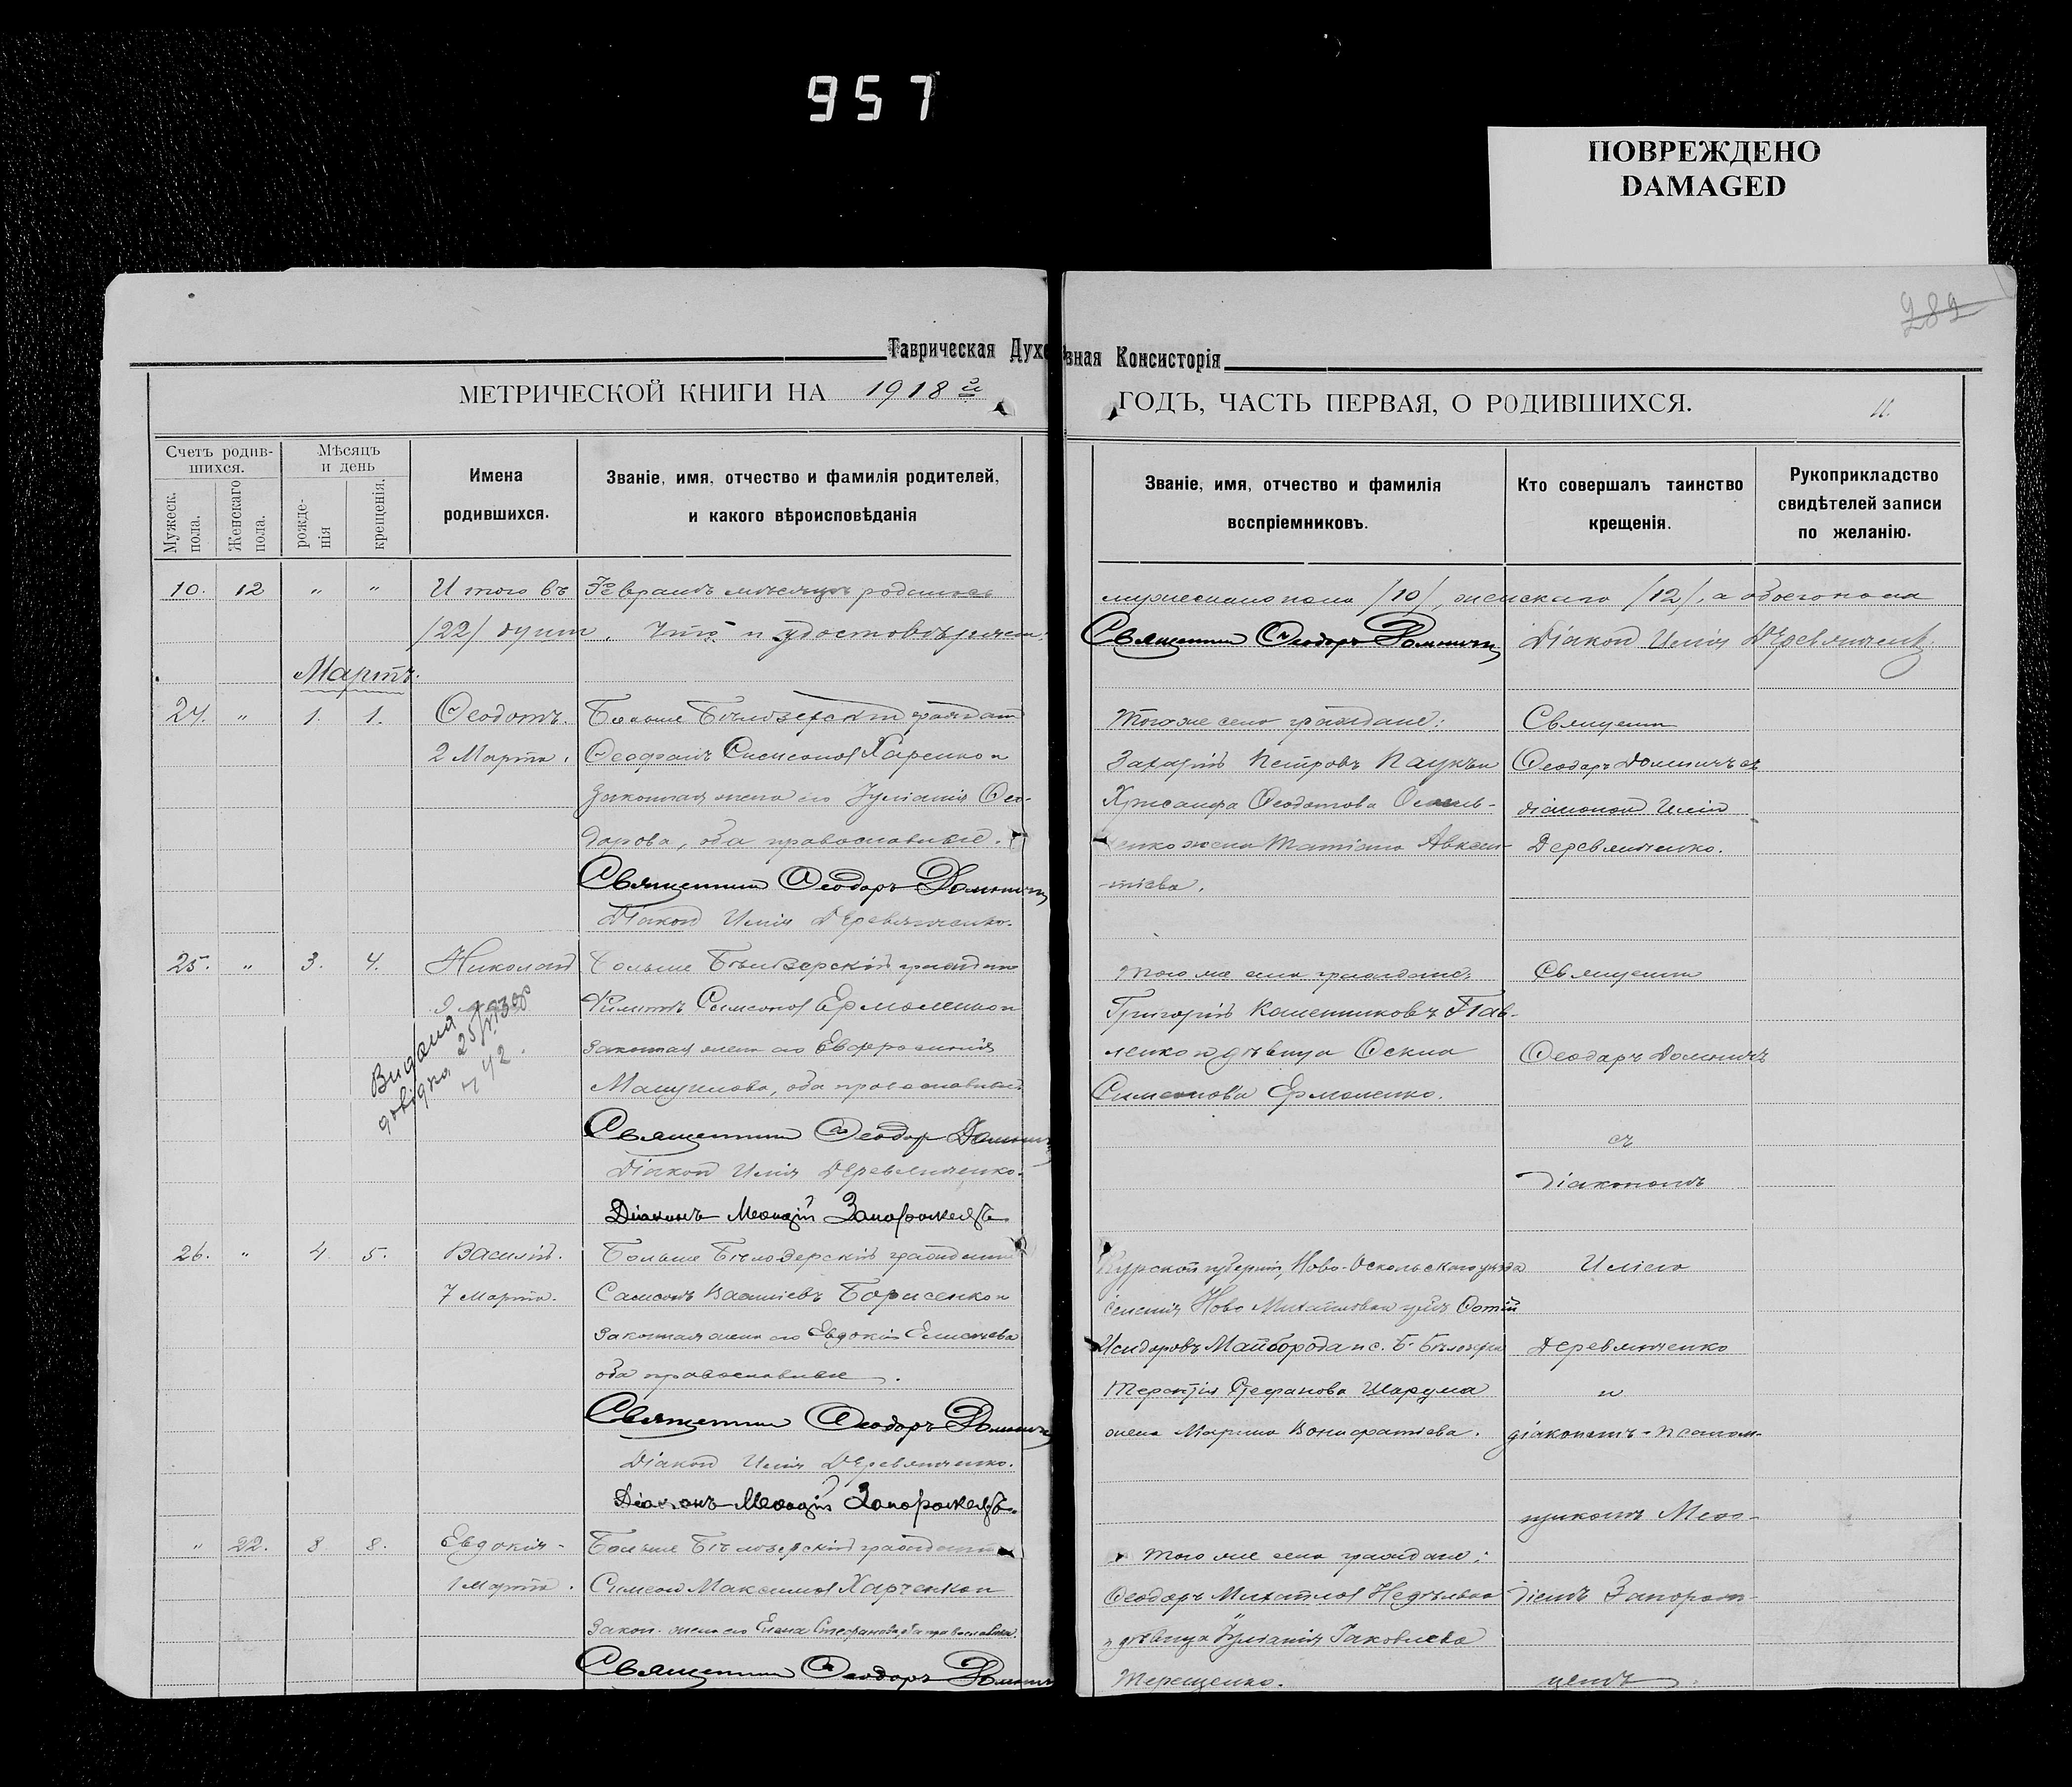 957
ПОВРЕЖДЕНО
DAMAGED
282
Таврическая Духовная Консисторія
МЕТРИЧЕСКОЙ КНИГИ НА 1918 й ГОДЪ, ЧАСТЬ ПЕРВАЯ, О РОДИВШИХСЯ.
11.
Счетъ родив-
шихся.
Мужеск.
пола.
Женскаго
пола.
Мѣсяцъ
и день
рожде-
нія
крещенія.
Имена
родившихся.
Званіе, имя, отчество и фамилія родителей,
и какого вѣроисповѣданія
Званіе, имя, отчество и фамилія
воспріемниковъ.
Кто совершалъ таинство
крещенія.
Рукоприкладство
свидѣтелей записи
по желанію.
10. 12 " " Итого въ Февралѣ мѣсяцѣ родилось
/22/ душъ. Что и удостовѣряемъ:
мужескаго пола /10/, женскаго /12/, а обоего пола
Священникъ Ѳеодоръ Діаконъ Илія Деревянченко.
Мартъ.
24. " 1. 1. Ѳеодотъ.
2 Марта.
Больше Бѣлозерскій гражданинъ
Ѳеофанъ Симеоновъ Харенко и
законная жена его Іуліанія Ѳео-
дорова, оба православные.
Священникъ Ѳеодоръ
Діаконъ Илія Деревянченко.
Того же села граждане:
Захарій Петровъ Паукъ и
Хрисанфа Ѳеодотова
жена Татіана Авксен-
тіева.
Священникъ
Ѳеодоръ съ
діакономъ Иліей
Деревянченко.
25. " 3. 4. Николай
9 марта
Видана
довідка 25/
ч 42.
Больше Бѣлозерскій гражданинъ
Филиппъ Симеоновъ Ермоленко и
законная жена его Евфросинія
Мануилова, оба православные.
Священникъ Ѳеодоръ
Діаконъ Илія Деревянченко.
Діаконъ Меѳодій Запорожецъ
Того же села граждане:
Григорій Каленниковъ Пав-
ленко и дѣвица Ѳекла
Симеонова Ермоленко.
Священникъ
Ѳеодоръ
съ
діакономъ
26. " 4. 5. Василій.
7 марта.
Больше Бѣлозерскій гражданинъ
Самсонъ Васильевъ Борисенко и
законная жена его Евдокія Елисеева
оба православные.
Священникъ Ѳеодоръ
Діаконъ Илія Деревянченко.
Діаконъ Меѳодій Запорожецъ.
Курской губерніи, Ново-Оскольскаго уѣзда
селенія Ново Михайловки гр-нъ Фотій
Исидоровъ Майборода и с. Б. Бѣлозерки
Терентія Стефанова Шарума
жена Марина Вонифатіева.
Иліею
Деревянченко
и
діакономъ-псалом-
щикомъ Меѳо-
" 22. 8 8. Евдокія
1 Марта.
Больше Бѣлозерскій гражданинъ
Симеонъ Максимовъ Харченко и
закон. жена его Елена Стефанова, оба православны.
Священникъ Ѳеодоръ
Того же села граждане:
Ѳеодоръ Михайловъ Недѣлько
и дѣвица Іуліанія Іаковлева
Терещенко.
діемъ Запорож-
цемъ.